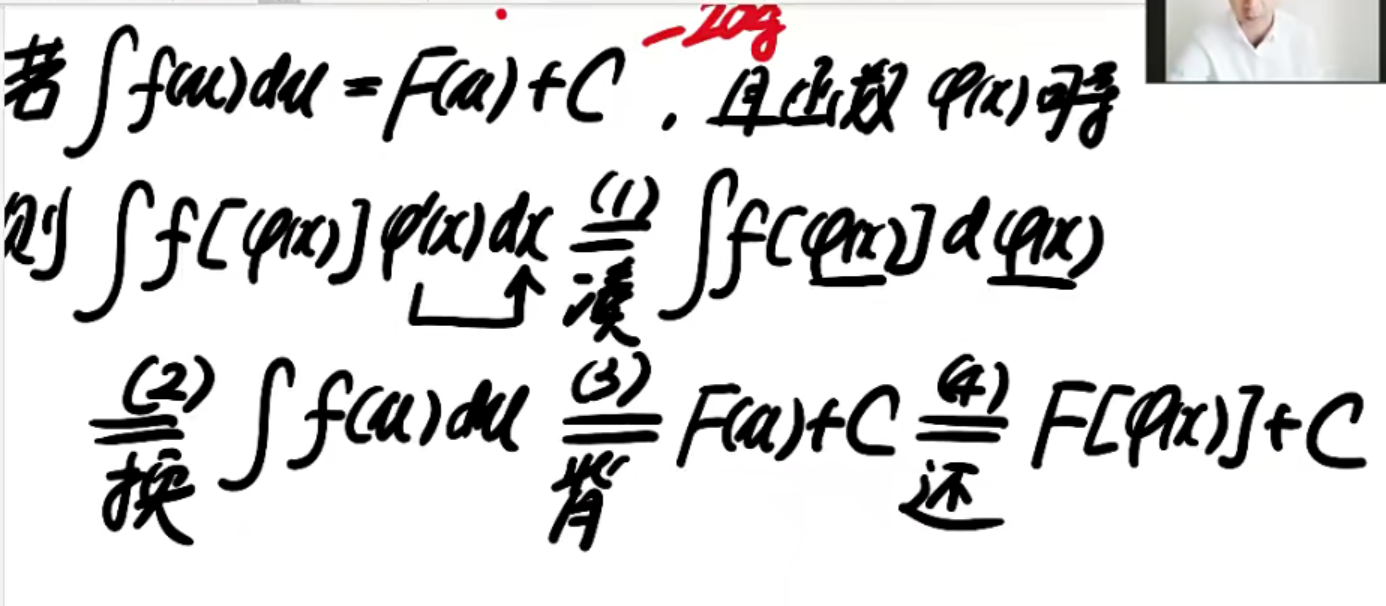 若 ∫f(u)du = F(u)+C , 且函数 φ(x)可导
则 ∫f[φ(x)]φ'(x)dx (1)== 凑 ∫f[φ(x)]dφ(x)
(2)== 换 ∫f(u)du (3)== 背 F(u)+C (4)== 还 F[φ(x)]+C